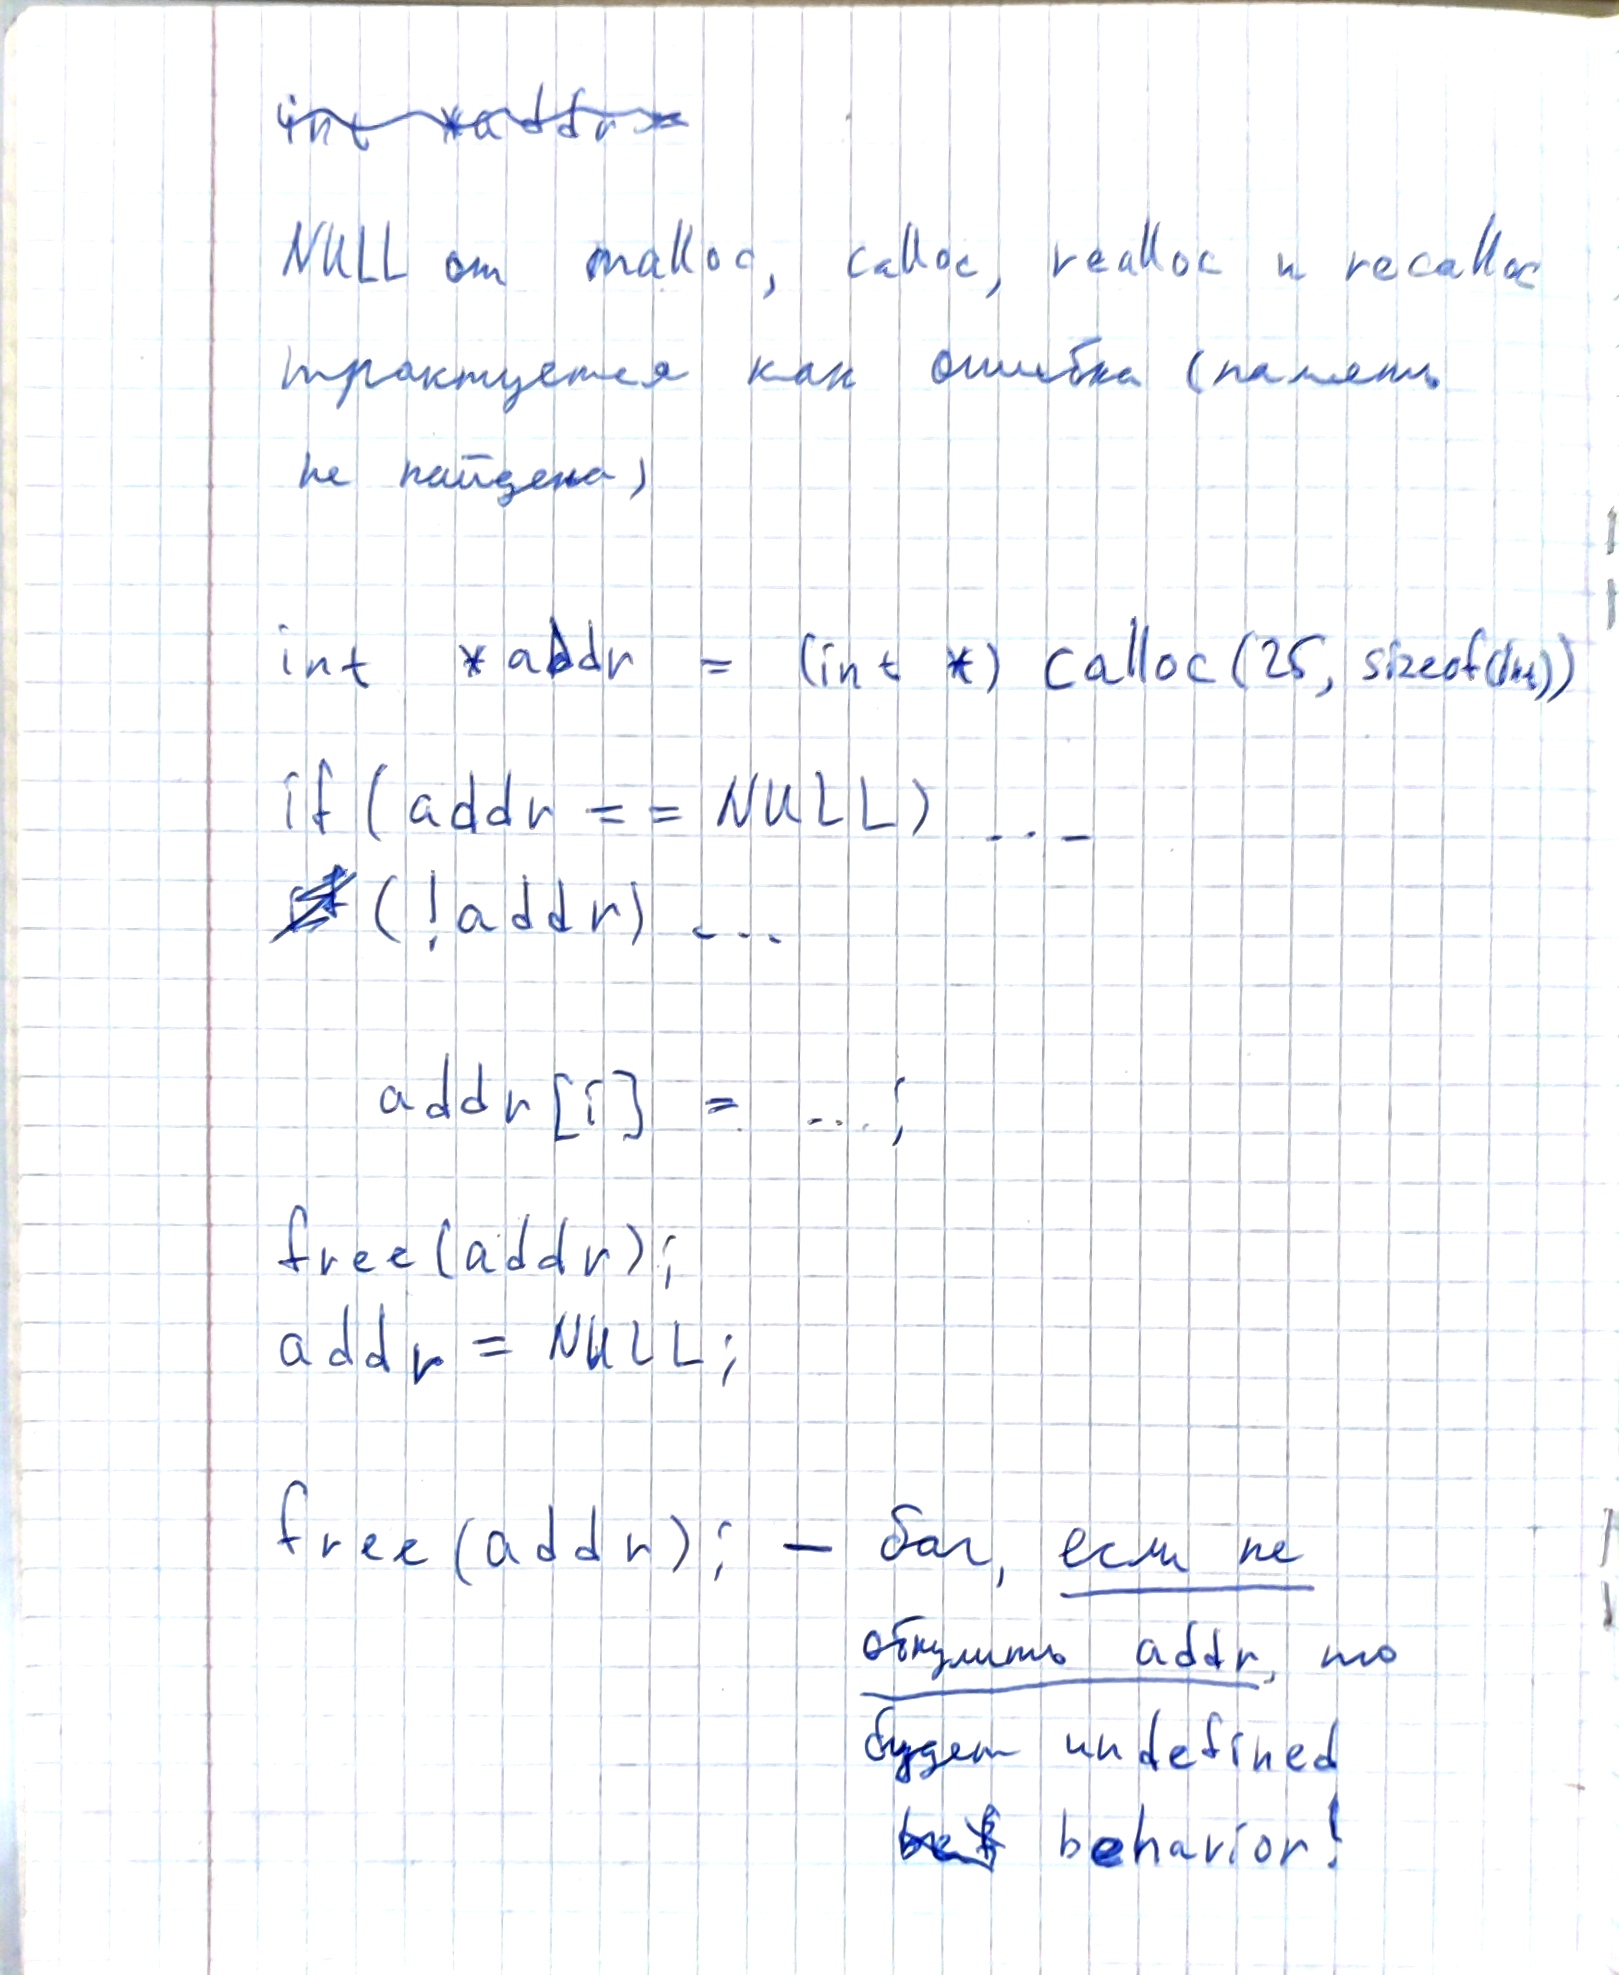 int *addr =
NULL от malloc, calloc, realloc и recalloc
трактуется как ошибка (память
не найдена)
int *addr = (int *) calloc(25, sizeof(int))
if (addr == NULL) ...
if (!addr) ...
addr[i] = ...;
free(addr);
addr = NULL;
free(addr); – баг, если не
обнулить addr, то
будет undefined
behavior!